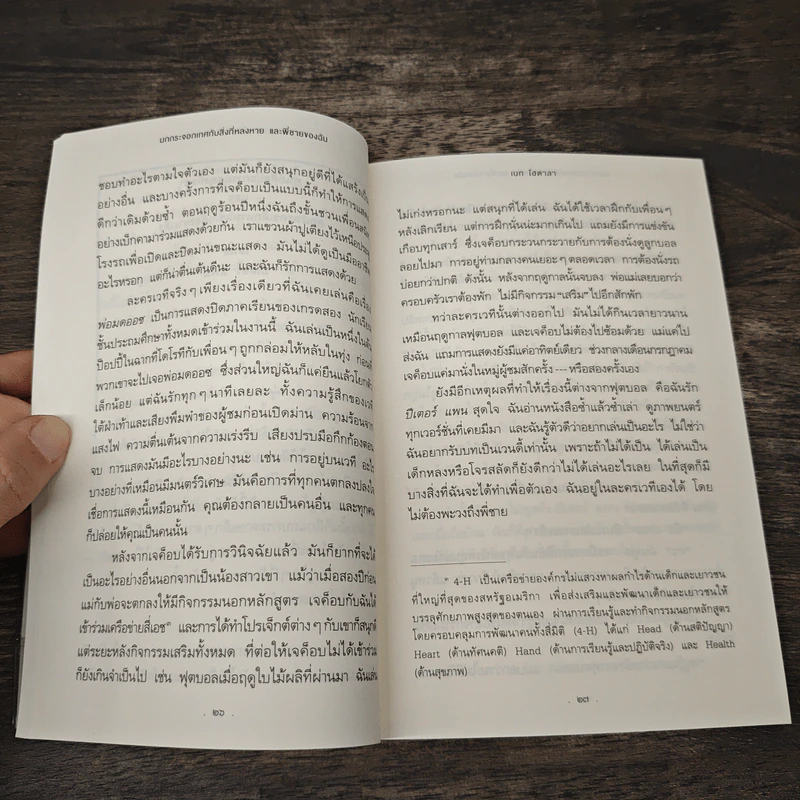 นกกระจอกเทศกับสิ่งที่หลงหาย และพี่ชายของฉัน
ชอบทำอะไรตามใจตัวเอง แต่มันก็ยังสนุกอยู่ดีที่ได้แสร้งเป็น
อย่างอื่น และบางครั้งการที่เจค็อบเป็นแบบนี้ก็ทำให้การแสดง
ดีกว่าเดิมด้วยซ้ำ ตอนฤดูร้อนปีหนึ่งฉันถึงขั้นชวนเพื่อนสนิท
อย่างเบ็กคามาร่วมแสดงด้วยกัน เราแขวนผ้าปูเตียงไว้เหนือประตู
โรงรถเพื่อเปิดและปิดม่านขณะแสดง มันไม่ได้ดูเป็นมืออาชีพ
อะไรหรอก แต่ก็น่าตื่นเต้นดีนะ และฉันก็รักการแสดงด้วย
ละครเวทีจริงๆ เพียงเรื่องเดียวที่ฉันเคยเล่นคือเรื่อง
พ่อมดออซ เป็นการแสดงปิดภาคเรียนของเกรดสอง นักเรียน
ชั้นประถมศึกษาทั้งหมดเข้าร่วมในงานนี้ ฉันเล่นเป็นหนึ่งในต้น
ป๊อปปี้ในฉากที่โดโรทีกับเพื่อนๆ ถูกกล่อมให้หลับในทุ่ง ก่อนที่
พวกเขาจะไปเจอพ่อมดออซ ซึ่งส่วนใหญ่ฉันก็แค่ยืนแล้วโยกตัว
เล็กน้อย แต่ฉันรักทุกๆ นาทีเลยละ ทั้งความรู้สึกของเวที
ใต้ฝ่าเท้าและเสียงพึมพำของผู้ชมก่อนเปิดม่าน ความร้อนจาก
แสงไฟ ความตื่นเต้นจากความเร่งรีบ เสียงปรบมือกึกก้องตอน
จบ การแสดงมันมีอะไรบางอย่างนะ เช่น การอยู่บนเวที อะไร
บางอย่างที่เหมือนมีมนตร์วิเศษ มันคือการที่ทุกคนตกลงปลงใจ
เชื่อการแสดงนี้เหมือนกัน คุณต้องกลายเป็นคนอื่น และทุกคน
ก็ปล่อยให้คุณเป็นคนนั้น
หลังจากเจค็อบได้รับการวินิจฉัยแล้ว มันก็ยากที่จะได้
เป็นอะไรอย่างอื่นนอกจากเป็นน้องสาวเขา แม้ว่าเมื่อสองปีก่อน
แม่กับพ่อจะตกลงให้มีกิจกรรมนอกหลักสูตร เจค็อบกับฉันได้
เข้าร่วมเครือข่ายสี่เอช* และการได้ทำโปรเจ็กต์ต่างๆ กับเขาก็สนุกดี
แต่ระยะหลังกิจกรรมเสริมทั้งหมด ที่ต่อให้เจค็อบไม่ได้เข้าร่วม
ก็ยังเกินจำเป็นไป เช่น ฟุตบอลเมื่อฤดูใบไม้ผลิที่ผ่านมา ฉันเล่น
. ๒๖ .
เบท โฮดาลา
ไม่เก่งหรอกนะ แต่สนุกที่ได้เล่น ฉันได้ใช้เวลาฝึกกับเพื่อนๆ
หลังเลิกเรียน แต่การฝึกนั่นน่ะมากเกินไป แถมยังมีการแข่งขัน
เกือบทุกเสาร์ ซึ่งเจค็อบกระวนกระวายกับการต้องนั่งดูลูกบอล
ลอยไปมา การอยู่ท่ามกลางคนเยอะๆ ตลอดเวลา การต้องนั่งรถ
บ่อยกว่าปกติ ดังนั้น หลังจากฤดูกาลนั้นจบลง พ่อแม่เลยบอกว่า
ครอบครัวเราต้องพัก ไม่มีกิจกรรม “เสริม” ไปอีกสักพัก
ทว่าละครเวทีนั้นต่างออกไป มันไม่ได้กินเวลายาวนาน
เหมือนฤดูกาลฟุตบอล และเจค็อบไม่ต้องไปซ้อมด้วย แม่แค่ไป
ส่งฉัน แถมการแสดงยังมีแค่อาทิตย์เดียว ช่วงกลางเดือนกรกฎาคม
เจค็อบแค่มานั่งในหมู่ผู้ชมสักครั้ง --- หรือสองครั้งเอง
ยังมีอีกเหตุผลที่ทำให้เรื่องนี้ต่างจากฟุตบอล คือฉันรัก
ปีเตอร์ แพน สุดใจ ฉันอ่านหนังสือซ้ำแล้วซ้ำเล่า ดูภาพยนตร์
ทุกเวอร์ชั่นที่เคยมีมา และฉันรู้ตัวดีว่าอยากเล่นเป็นอะไร ไม่ใช่ว่า
ฉันอยากรับบทเป็นเวนดี้เท่านั้น เพราะถ้าไม่ได้เป็น ได้เล่นเป็น
เด็กหลงหรือโจรสลัดก็ยังดีกว่าไม่ได้เล่นอะไรเลย ในที่สุดก็มี
บางสิ่งที่ฉันจะได้ทำเพื่อตัวเอง ฉันอยู่ในละครเวทีเองได้ โดย
ไม่ต้องพะวงถึงพี่ชาย
* 4-H เป็นเครือข่ายองค์กรไม่แสวงหาผลกำไรด้านเด็กและเยาวชน
ที่ใหญ่ที่สุดของสหรัฐอเมริกา เพื่อส่งเสริมและพัฒนาเด็กและเยาวชนให้
บรรลุศักยภาพสูงสุดของตนเอง ผ่านการเรียนรู้และทำกิจกรรมนอกหลักสูตร
โดยครอบคลุมการพัฒนาคนทั้งสี่มิติ (4-H) ได้แก่ Head (ด้านสติปัญญา)
Heart (ด้านทัศนคติ) Hand (ด้านการเรียนรู้และปฏิบัติจริง) และ Health
(ด้านสุขภาพ)
. ๒๗ .